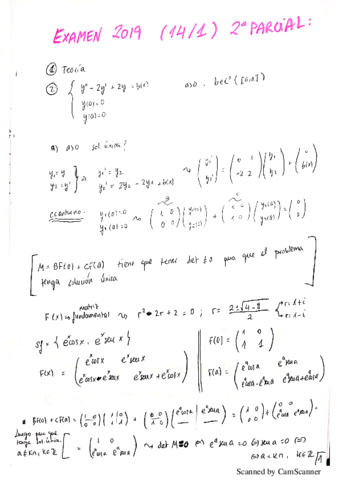 EXAMEN 2019 (14/1) 2º PARCIAL:
① Teoría
② { y'' - 2y' + 2y = b(x)
y(0)=0
y(a)=0
a>0. b∈C([0,a])
a) a>0 sol única?
y₁=y
y₂=y' } ⇒ y₁' = y₂
y₂' = 2y₂ - 2y₁ + b(x) ⇝ (y₁' y₂') = (0 1 -2 2)(y₁ y₂) + (0 b(x))
y₁(0)=0
y₁(a)=0 ⇝ (1 0 0 0)(y₁(0) y₂(0)) + (0 0 1 0)(y₁(a) y₂(a)) = (0 0)
[ M = BF(0) + CF(a) tiene que tener det ≠ 0 para que el problema
tenga solución única
F(x) matriz fundamental ⇝ r² - 2r + 2 = 0 ; r = (2±√4-8)/2 r=1+i r=1-i
Sf = { eˣcosx, eˣsenx }
F(0) = (1 0 1 1)
F(x) = (eˣcosx eˣsenx eˣcosx-eˣsenx eˣsenx+eˣcosx)
F(a) = (eᵃcosa eᵃsena eᵃcosa-eᵃsena eᵃsena+eᵃcosa)
BF(0) + CF(a) = (1 0 0 0)(1 0 1 1) + (0 0 1 0)(eᵃcosa eᵃsena) = (1 0 0 0) + (0 0 eᵃcosa eᵃsena) =
Luego para que
tenga sol única
a≠kπ, k∈Z
= (1 0 eᵃcosa eᵃsena) ⇝ det M=0 ⇔ eᵃsena=0 ⇔ sena=0 ⇔
⇔ a=kπ, k∈Z
1
Scanned by CamScanner